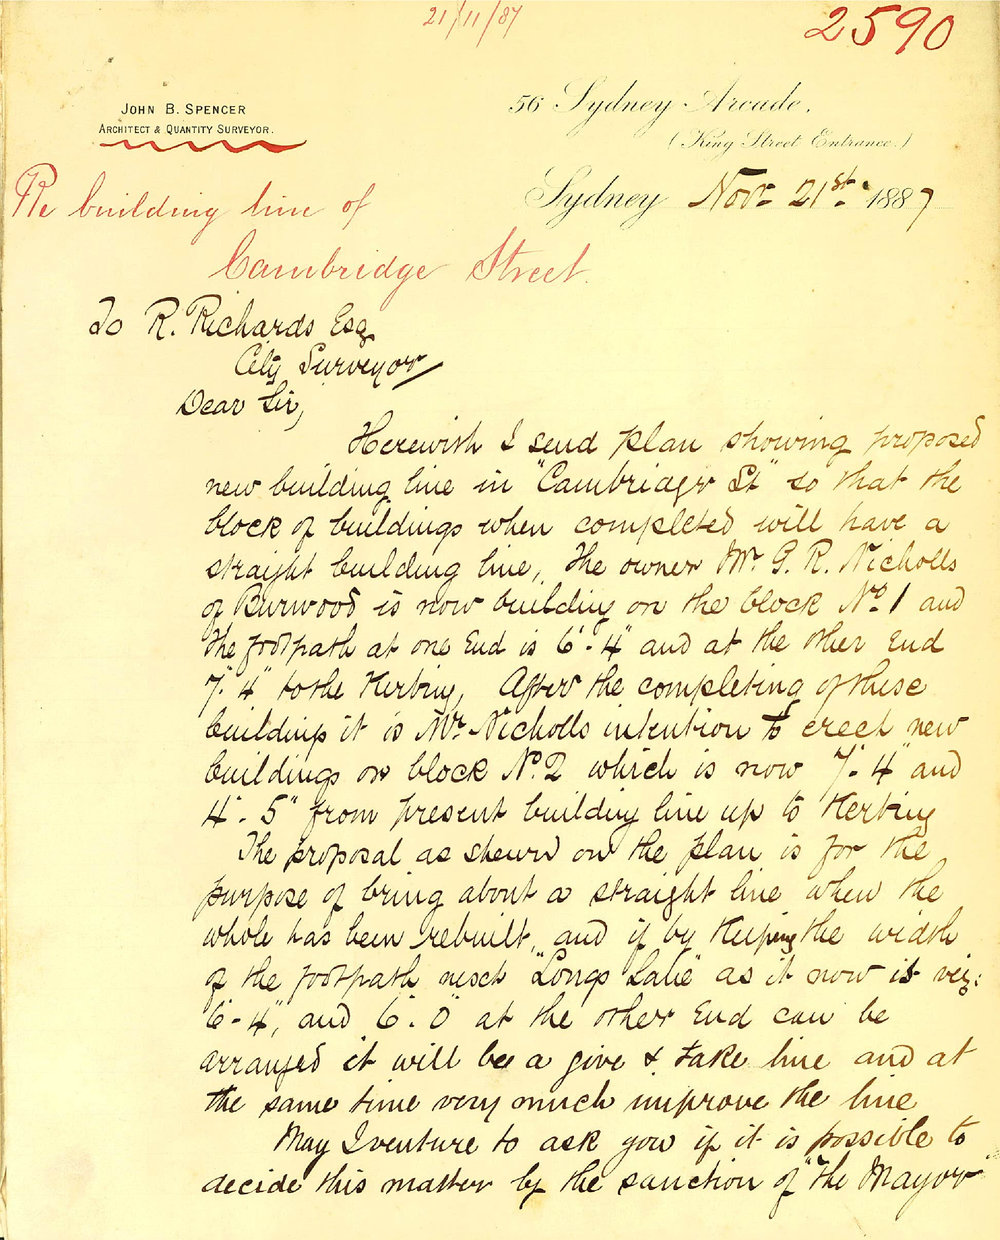 21/11/87
2590
JOHN B. SPENCER
ARCHITECT & QUANTITY SURVEYOR.
56 Sydney Arcade.
(King Street Entrance.)
Sydney Nov. 21st. 1887
Re building line of
Cambridge Street.
To R. Richards Esq
City Surveyor
Dear Sir,
Herewith I send plan showing proposed
new building line in "Cambridge St" so that the
block of buildings when completed will have a
straight building line, the owner Mr. G. R. Nicholls
of Burwood is now building on the block No. 1 and
the footpath at one End is 6'-4" and at the other End
7'-4" to the Kerbing, After the completing of these
buildings it is Mr. Nicholls intention to erect new
buildings on block No. 2 which is now 7'-4" and
4'-5" from present building line up to Kerbing
The proposal as shewn on the plan is for the
purpose of bring about a straight line when the
whole has been rebuilt, and if by Keeping the width
of the footpath next "Longs Lane" as it now is viz:
6'-4", and 6'-0" at the other End can be
arranged it will be a give & take line and at
the same time very much improve the line
May I venture to ask you if it is possible to
decide this matter by the sanction of "the Mayor"